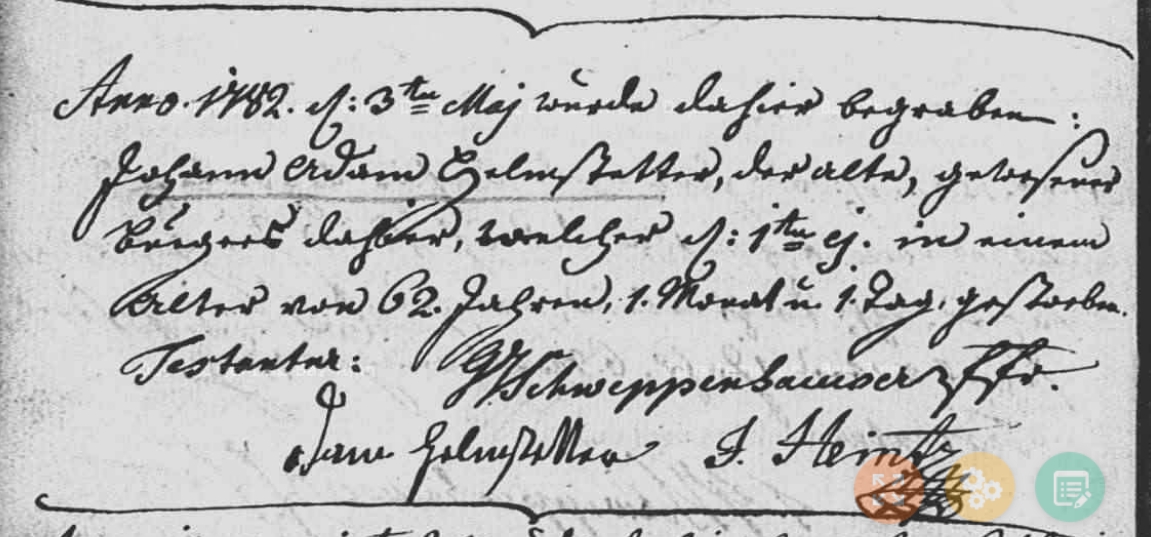 Anno. 1782. d: 3ten Maj wurde dahier begraben :
Johann Adam Helmstetter, der alte, gewesener
Bürgers dahier, welcher d: 1ten ej. in einem
Alter von 62. Jahren, 1. Monat u. 1. Tag, gestorben.
Testantur: Schweppenhaeuser Pfr.
Adam Helmstetter J. Heintz